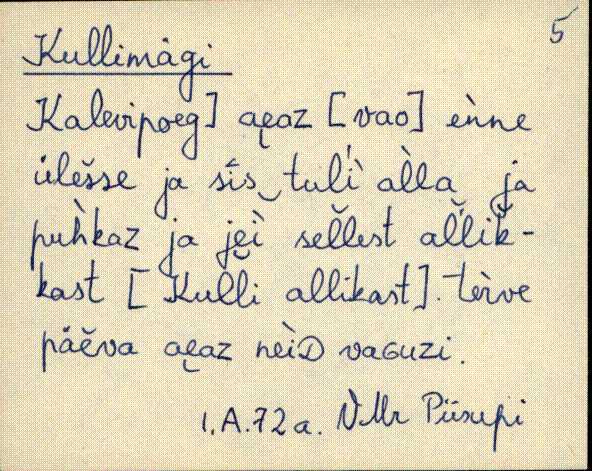 5
Kullimägi
Kalevipoeg] aeaz [vao] ènne
üles̆se ja sis‿tulì àlla ja
puh̀kaz ja jĕì sel̆lest al̆lik-
kast [Kul̆li allikast]. tèrve
päĕva aeaz neìD vaGuzi.
1.A.72 a. VMr Piirupi